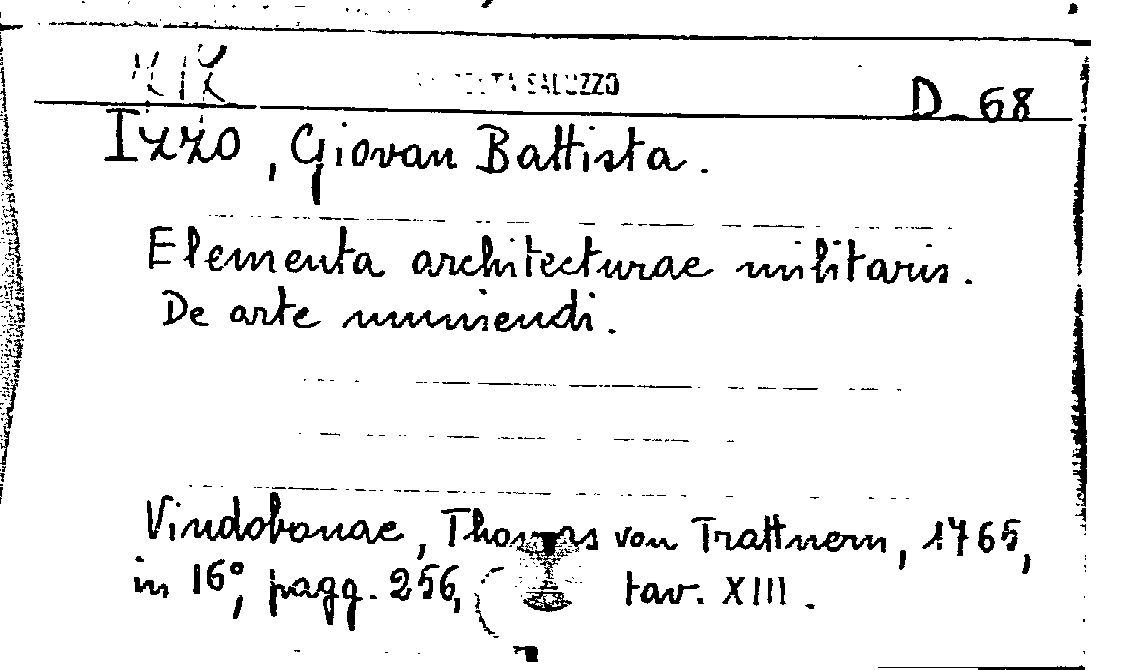 SALUZZO D. 68
Izzo, Giovan Battista.
Elementa architecturae militaris.
De arte muniendi.
Vindobonae, Thomas von Trattnern, 1765,
in 16°, pagg. 256, tav. XIII.